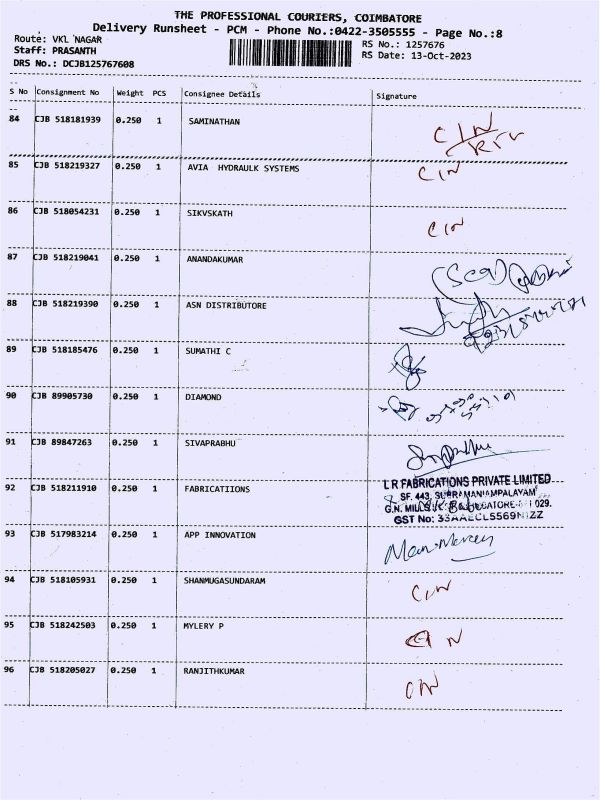 THE PROFESSIONAL COURIERS, COIMBATORE
Delivery Runsheet - PCM - Phone No.:0422-3505555 - Page No.:8
Route: VKL NAGAR
RS No.: 1257676
Staff: PRASANTH
RS Date: 13-Oct-2023
DRS No.: DCJB125767608
S No Consignment No Weight PCS Consignee Details Signature
84 CJB 518181939 0.250 1 SAMINATHAN CIN
85 CJB 518219327 0.250 1 AVIA HYDRAULK SYSTEMS CIN
86 CJB 518054231 0.250 1 SIKVSKATH CIN
87 CJB 518219041 0.250 1 ANANDAKUMAR
88 CJB 518219390 0.250 1 ASN DISTRIBUTORE
89 CJB 518185476 0.250 1 SUMATHI C
90 CJB 89905730 0.250 1 DIAMOND
91 CJB 89847263 0.250 1 SIVAPRABHU
92 CJB 518211910 0.250 1 FABRICATIIONS
L R FABRICATIONS PRIVATE LIMITED
SF. 443, SUBRAMANIAMPALAYAM
G.N. MILLS 029.
GST No: 33AAECL5569N1ZZ
93 CJB 517983214 0.250 1 APP INNOVATION
94 CJB 518105931 0.250 1 SHANMUGASUNDARAM CIN
95 CJB 518242503 0.250 1 MYLERY P CIN
96 CJB 518205027 0.250 1 RANJITHKUMAR CIN